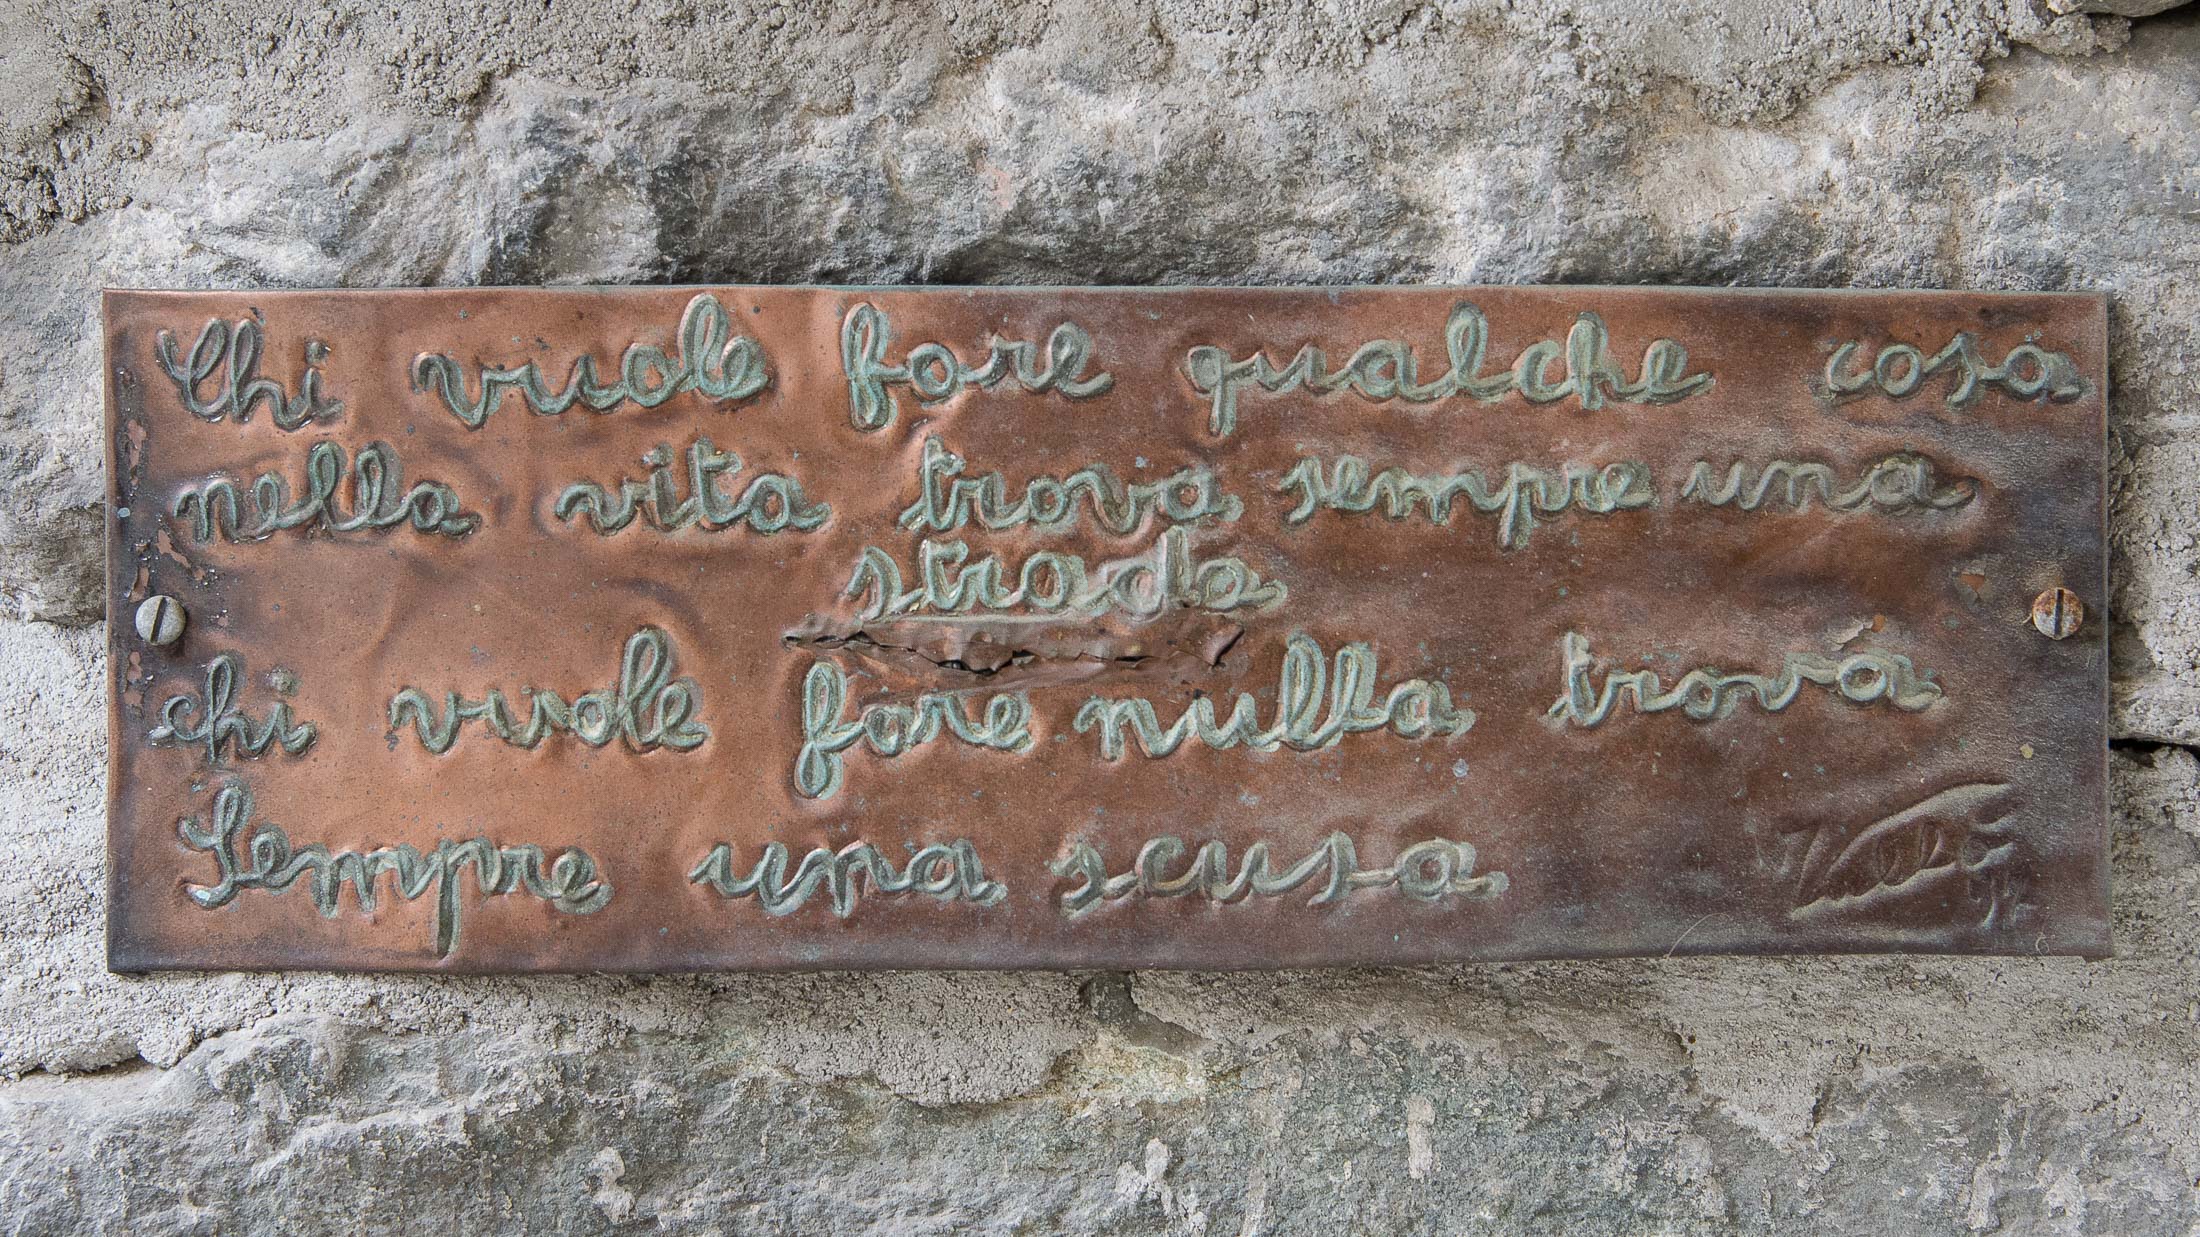 Chi vuole fare qualche cosa
nella vita trova sempre una
strada
chi vuole fare nulla trova
Sempre una scusa